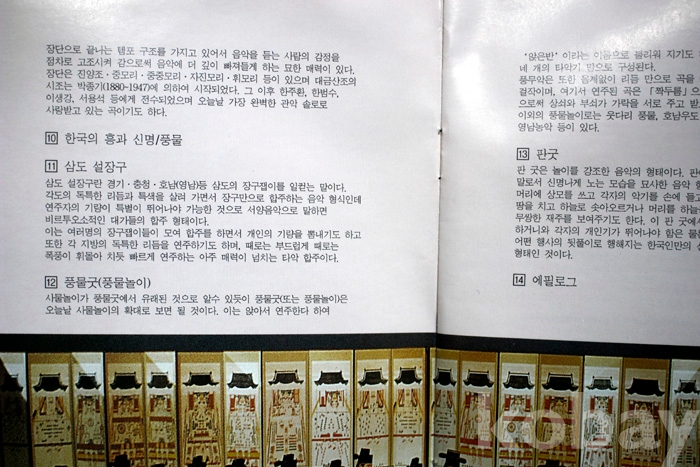 장단으로 끝나는 템포 구조를 가지고 있어서 음악을 듣는 사람의 감정을
점차로 고조시켜 감으로써 음악에 더 깊이 빠져들게 하는 묘한 매력이 있다.
장단은 진양조·중모리·중중모리·자진모리·휘모리 등이 있으며 대금산조의
시조는 박종기(1880~1947)에 의하여 시작되었다. 그 이후 한주환, 한범수,
이생강, 서용석 등에게 전수되었으며 오늘날 가장 완벽한 관악 솔로로
사랑받고 있는 곡이기도 하다.
10 한국의 흥과 신명/풍물
11 삼도 설장구
삼도 설장구란 경기·충청·호남(영남)등 삼도의 장구잽이를 일컫는 말이다.
각도의 독특한 리듬과 특색을 살려 가면서 장구만으로 합주하는 음악 형식인데
연주자의 기량이 특별이 뛰어나야 가능한 것으로 서양음악으로 말하면
비르투오소적인 대가들의 합주 형태이다.
이는 여러명의 장구잽이들이 모여 합주를 하면서 개인의 기량을 뽐내기도 하고
또한 각 지방의 독특한 리듬을 연주하기도 하며, 때로는 부드럽게 때로는
폭풍이 휘몰아 치듯 빠르게 연주하는 아주 매력이 넘치는 타악 합주이다.
12 풍물굿(풍물놀이)
사물놀이가 풍물굿에서 유래된 것으로 알수 있듯이 풍물굿(또는 풍물놀이)은
오늘날 사물놀이의 확대로 보면 될 것이다. 이는 앉아서 연주한다 하여
'앉은반' 이라는 이름으로 불리워 지기도
네 개의 타악기 만으로 구성된다.
풍무악은 또한 쉽게없이 리듬 만으로 곡을
걸작이며, 여기서 연주된 곡은 「짝두름」으
으로써 상쇠와 부쇠가 가락을 서로 주고 받
이외의 풍물놀이로는 웃다리 풍물, 호남우도
영남농악 등이 있다.
13 판굿
판 굿은 놀이를 강조한 음악의 형태이다. 판이
말로서 신명나게 노는 모습을 묘사한 음악
머리에 상모를 쓰고 각자의 악기를 손에 들고
땅을 치고 하늘로 솟아오르거나 머리를 하늘
무쌍한 재주를 보여주기도 한다. 이 판 굿에서
하거니와 각자의 개인기가 뛰어나야 함은 물론
어떤 행사의 뒷풀이로 행해지는 한국인만의 신
형태인 것이다.
14 에필로그
kobay